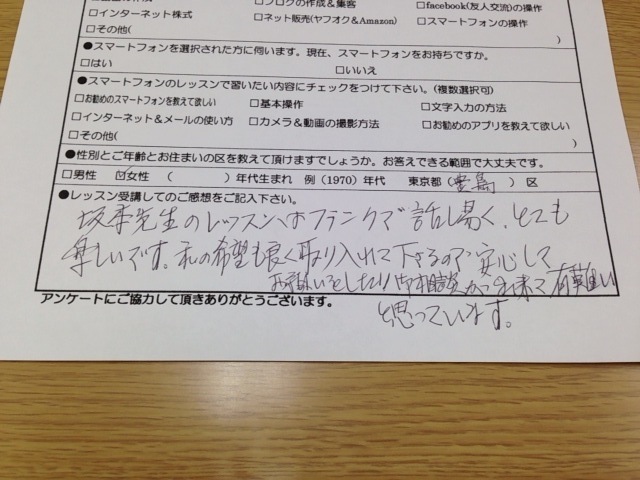 □ブログの作成＆集客
□facebook(友人交流)の操作
□インターネット株式
□ネット販売(ヤフオク＆Amazon)
□スマートフォンの操作
□その他( )
●スマートフォンを選択された方に伺います。現在、スマートフォンをお持ちですか。
□はい □いいえ
●スマートフォンのレッスンで習いたい内容にチェックをつけて下さい。(複数選択可)
□お勧めのスマートフォンを教えて欲しい □基本操作 □文字入力の方法
□インターネット＆メールの使い方 □カメラ＆動画の撮影方法 □お勧めのアプリを教えて欲しい
□その他( )
●性別とご年齢とお住まいの区を教えて頂けますでしょうか。お答えできる範囲で大丈夫です。
□男性 ☑女性 ( )年代生まれ 例（1970）年代 東京都（豊島）区
●レッスン受講してのご感想をご記入下さい。
坂本先生のレッスンはフランクで話し易く、とても
楽しいです。私の希望も良く取り入れて下さるので安心して
お願いをしたり御相談が出来て有難い
と思っています。
アンケートにご協力して頂きありがとうございます。